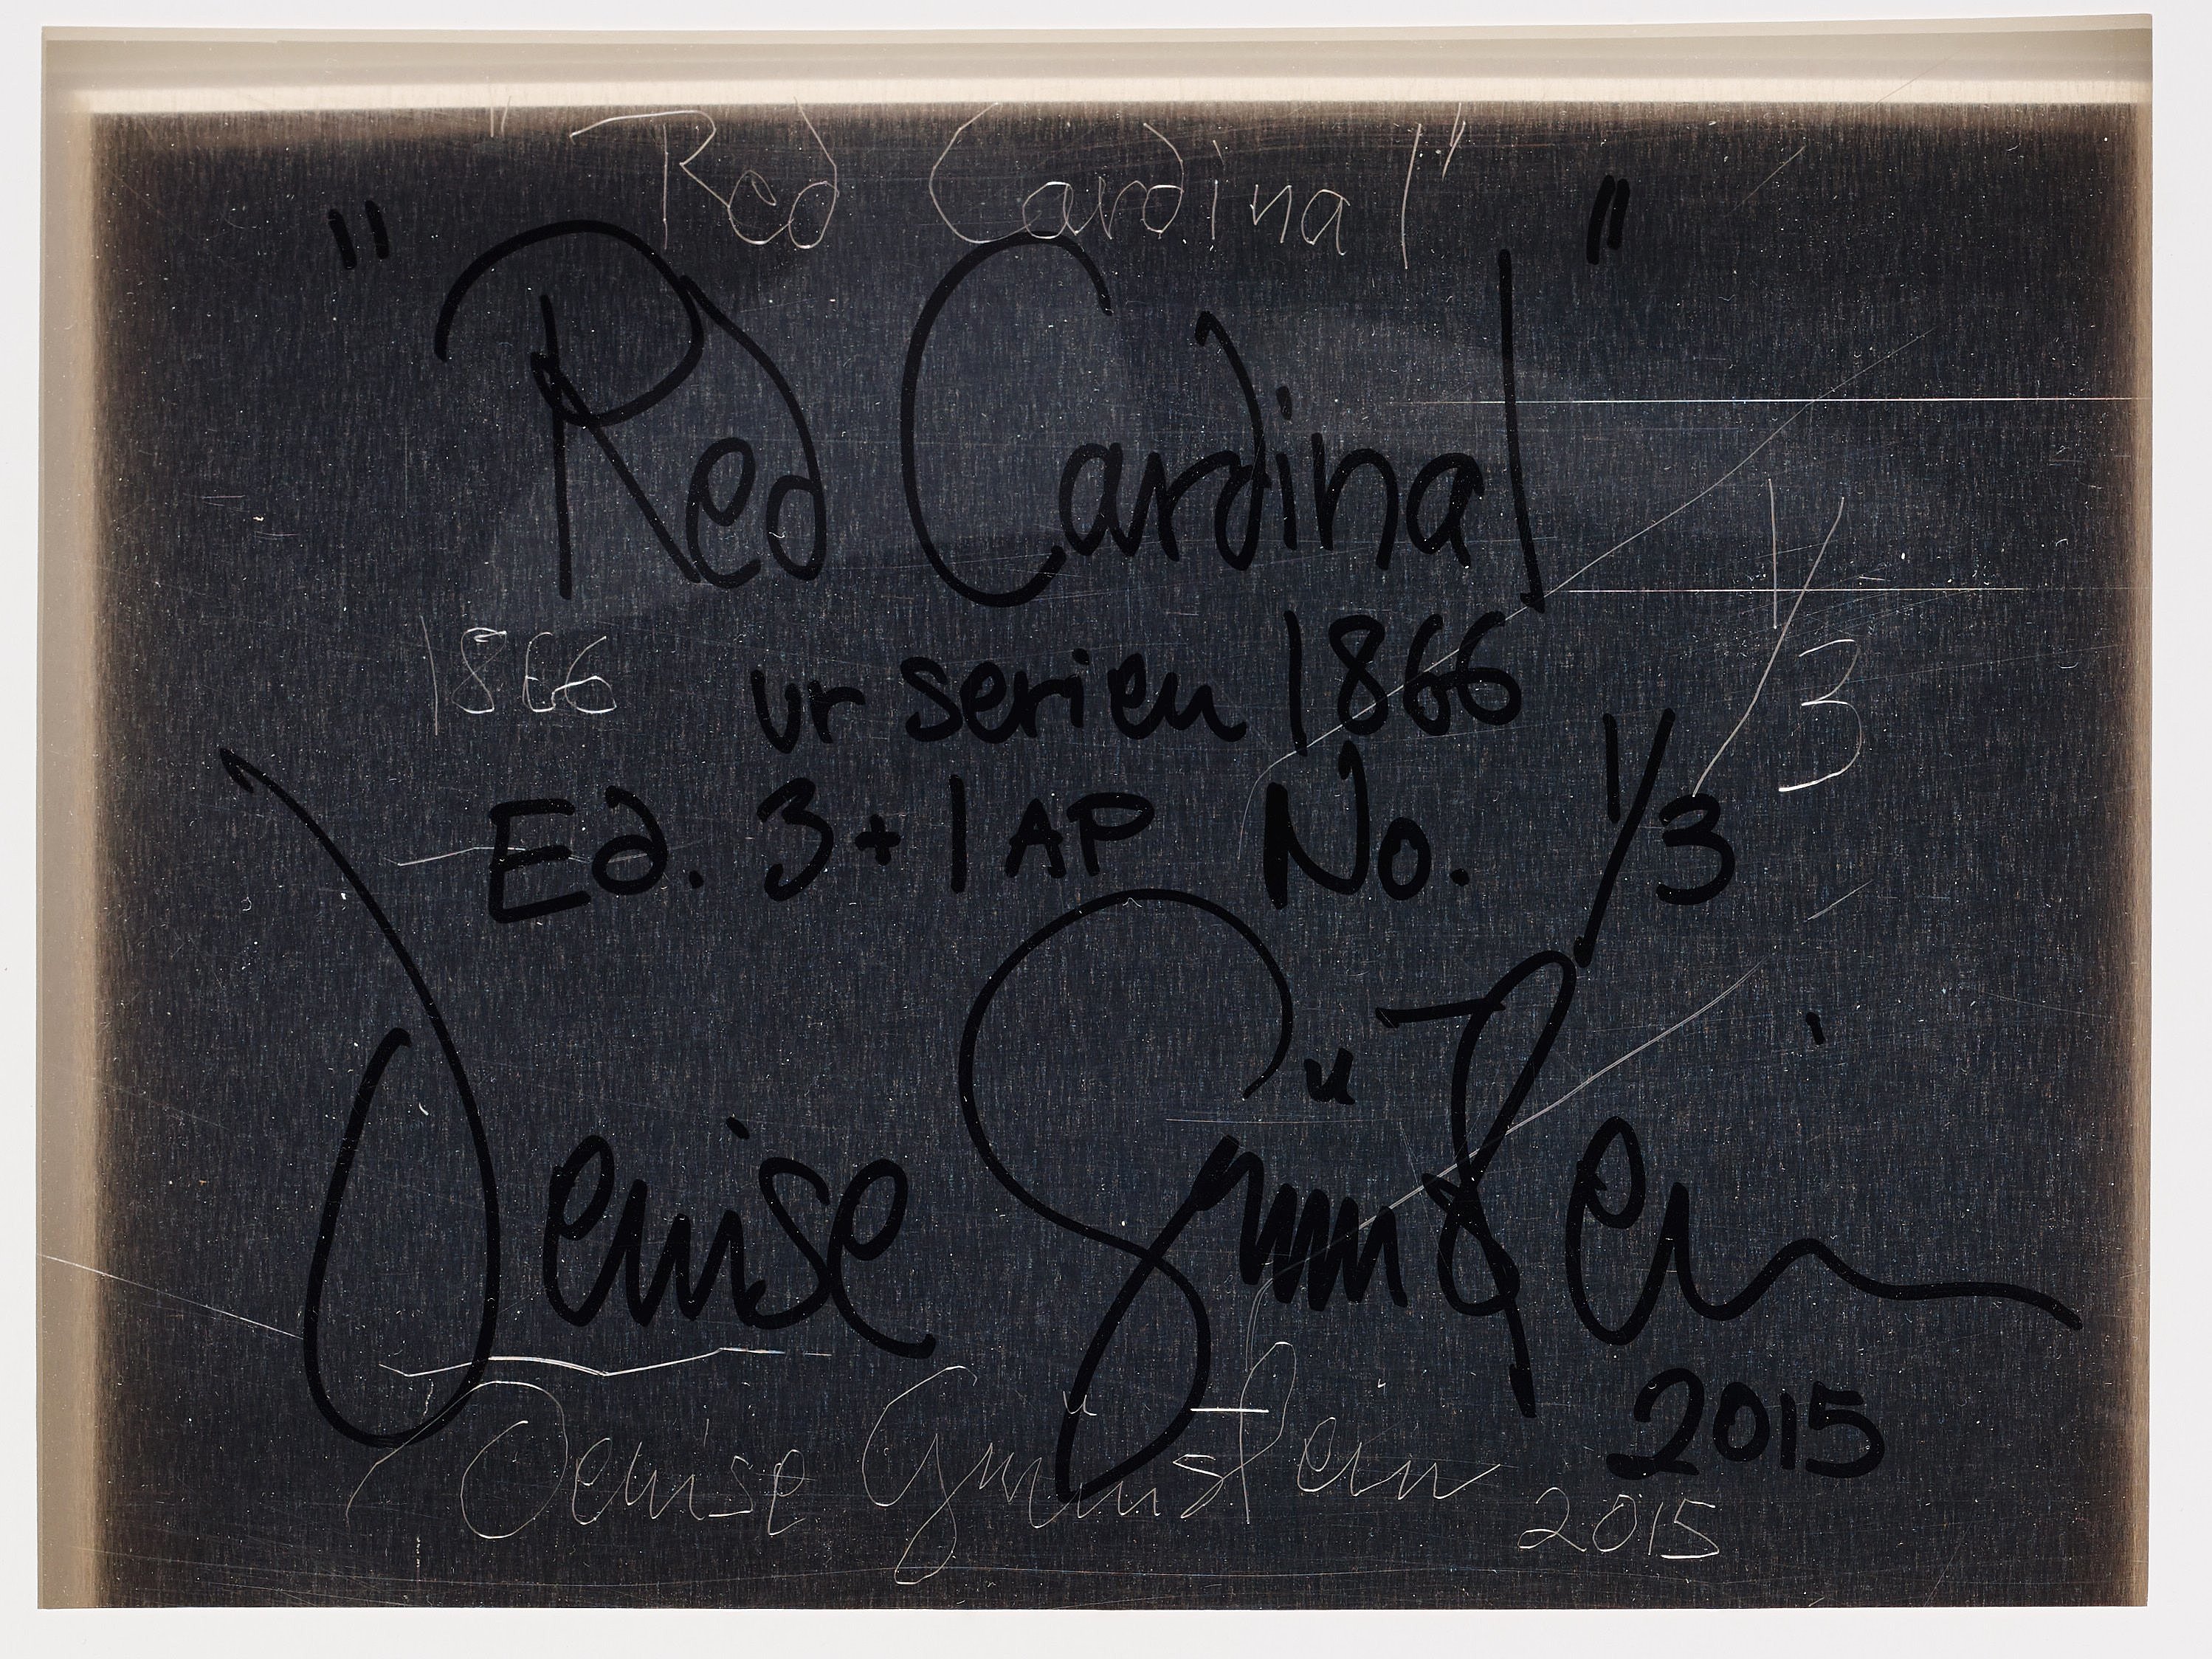 "Red Cardinal"
"Red Cardinal"
1866
ur serien 1866
1/3
Ed. 3+1 AP No. 1/3
Denise Grünstein
2015
Denise Grünstein
2015